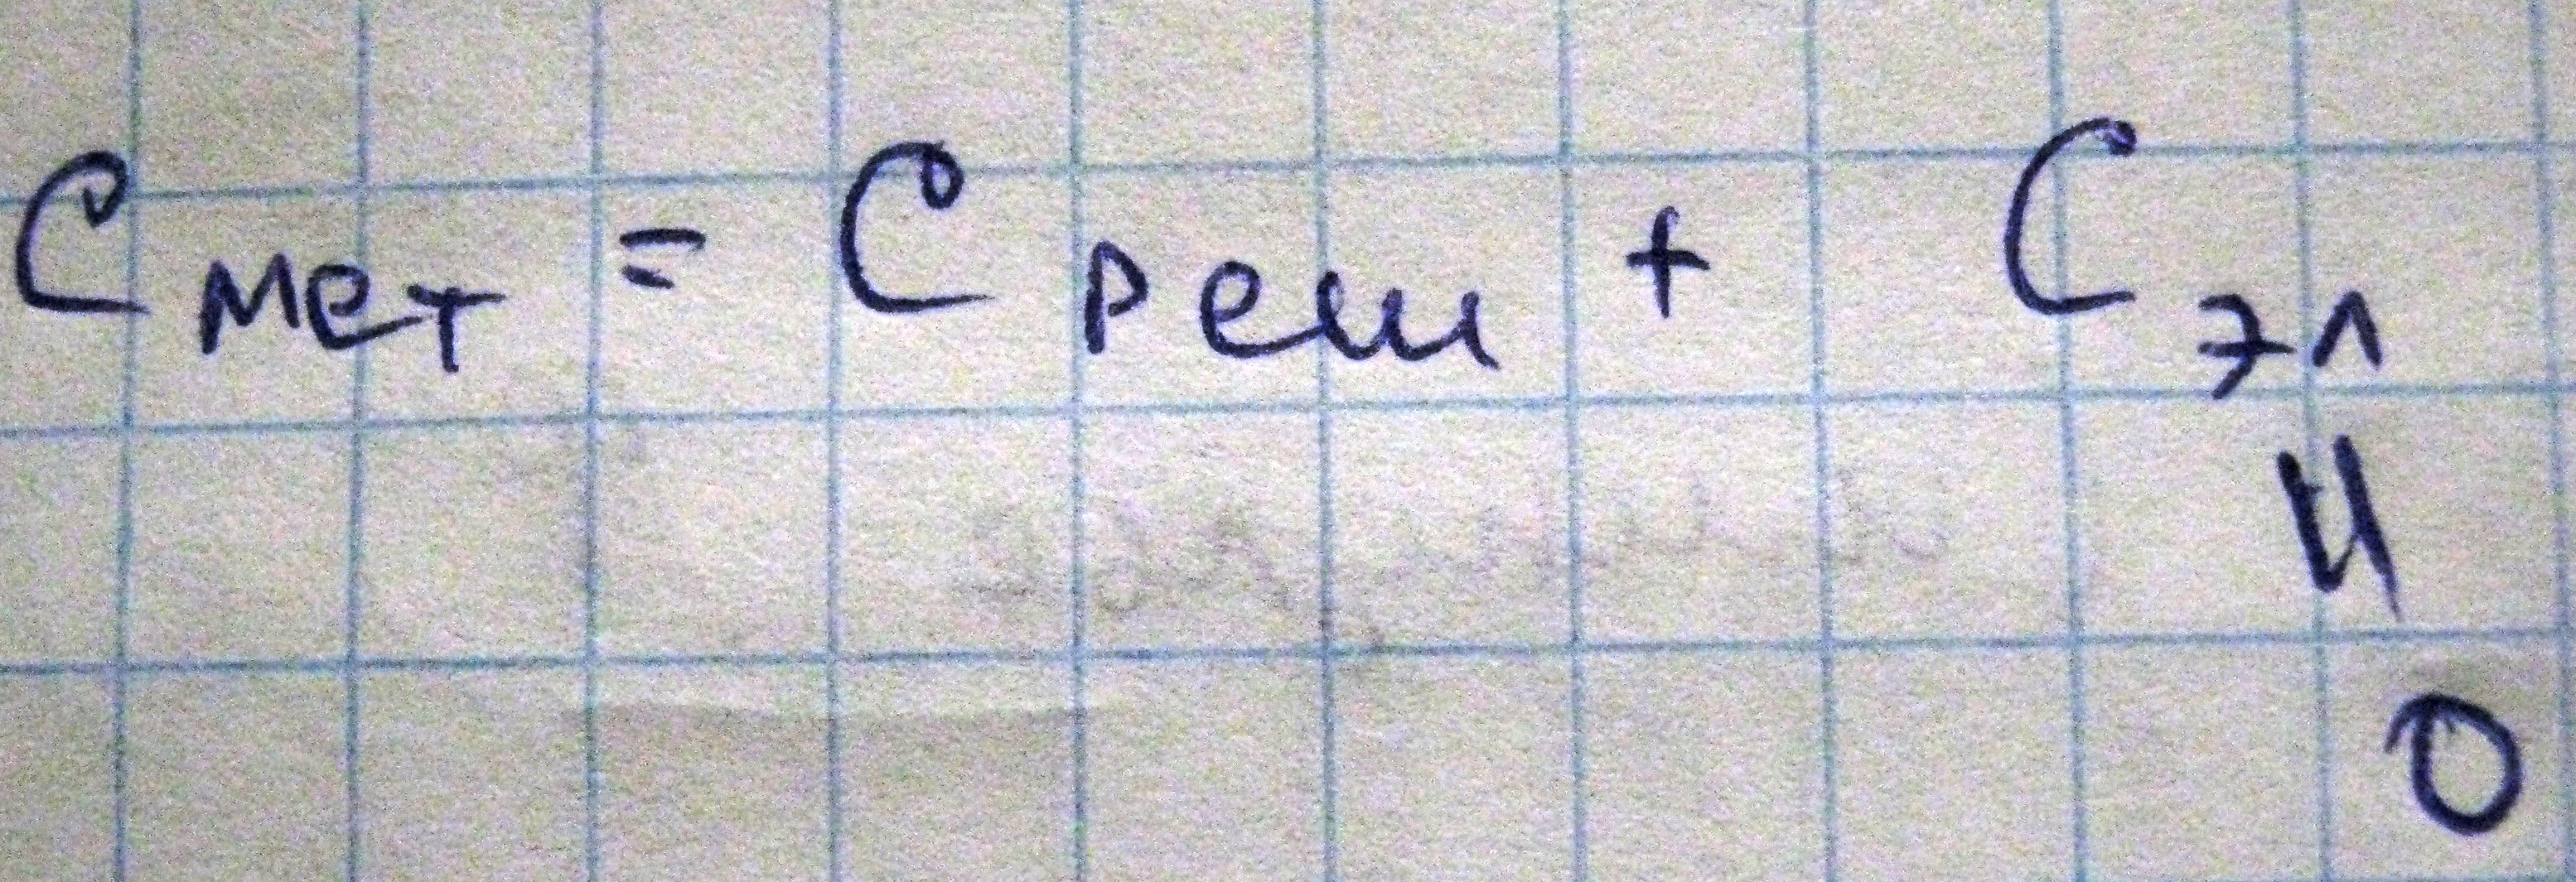 C мет = C реш + C эл
||
0